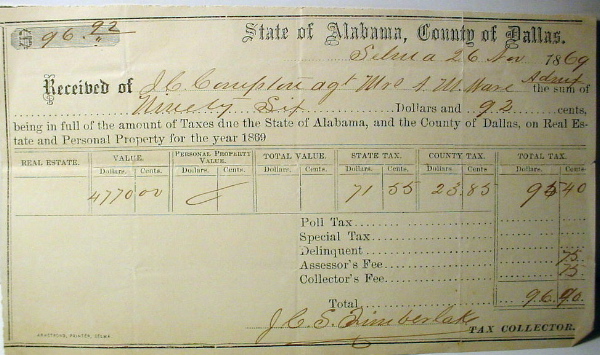 $ 96.92
State of Alabama, County of Dallas.
Selma 26 Nov 1869
Received of J. C. Compton agt Mrs S. M. Ware Admx the sum of
Ninety Six Dollars and 92 cents,
being in full of the amount of Taxes due the State of Alabama, and the County of Dallas, on Real Es-
tate and Personal Property for the year 1869
REAL ESTATE. VALUE. PERSONAL PROPERTY VALUE. TOTAL VALUE. STATE TAX. COUNTY TAX. TOTAL TAX.
Dollars. Cents. Dollars. Cents. Dollars. Cents. Dollars. Cents. Dollars. Cents. Dollars. Cents.
4770 00 71 55 23.85 95 40
Poll Tax
Special Tax
Delinquent
Assessor's Fee 75
Collector's Fee 75
Total 96.90
J. C. S. Timberlake TAX COLLECTOR.
ARMSTRONG, PRINTER, SELMA